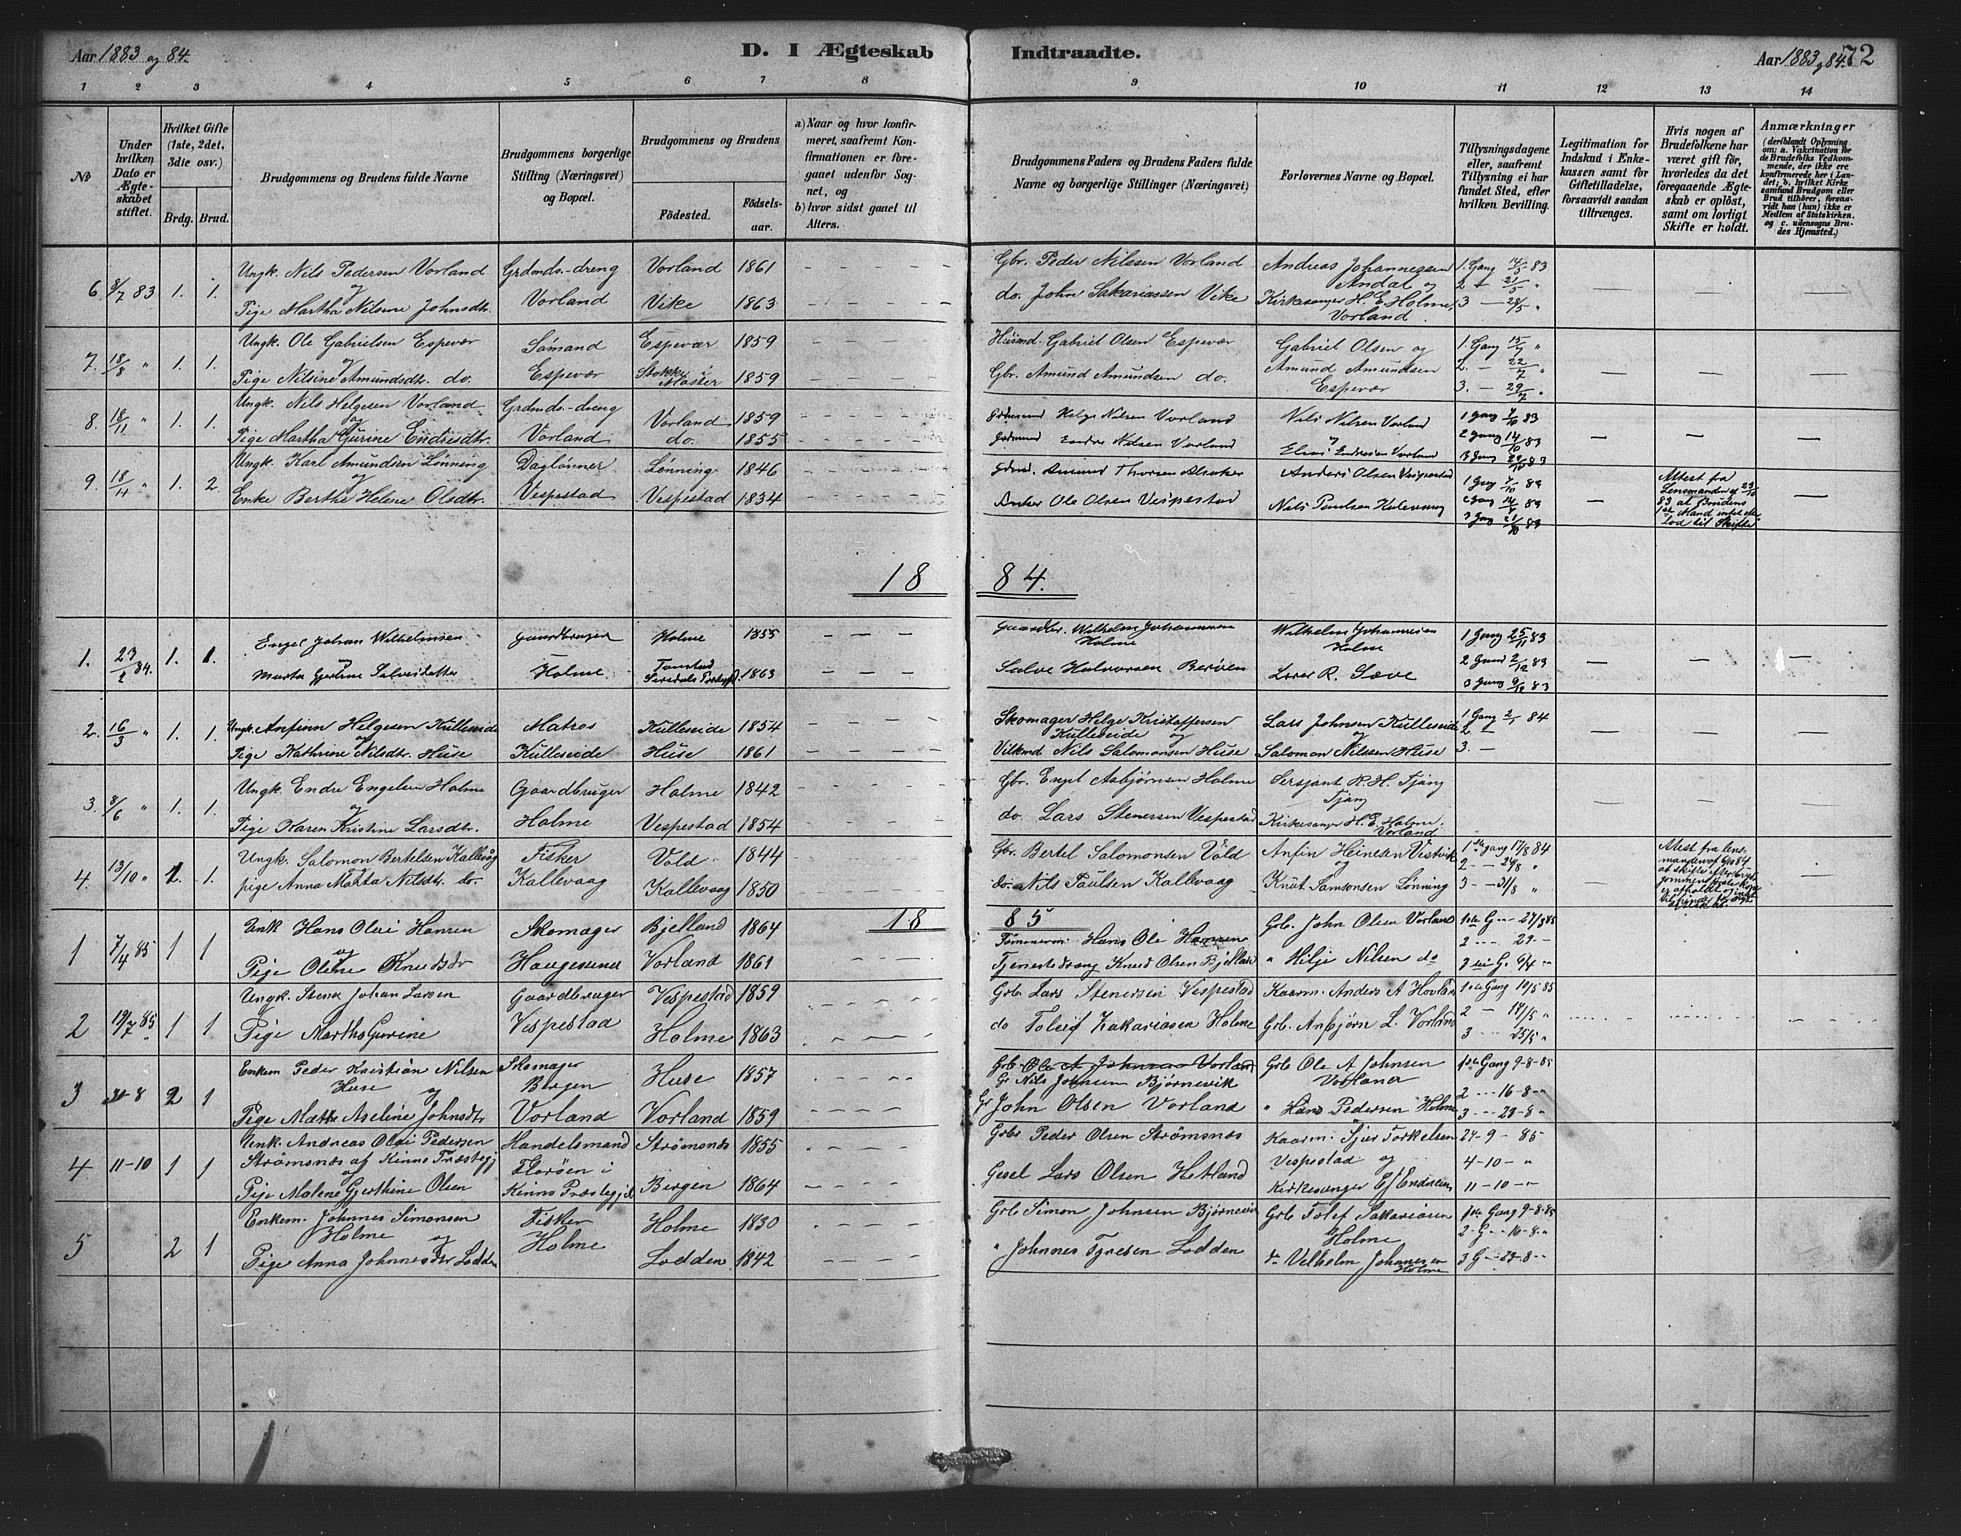 Aar 1883 og 84.
D. I Ægteskab
Indtraadte.
Aar 1883 og 84.
72
1 2 3 4 5 6 7 8 9 10 11 12 13 14
No
Under hvilken Dato er Ægteskabet stiftet.
Hvilket Gifte (1ste, 2det, 3die osv.)
Brdg. Brud.
Brudgommens og Brudens fulde Navne
Brudgommens borgerlige Stilling (Næringsvei) og Bopæl.
Brudgommens og Brudens
Fødested.
Fødselsaar.
a) Naar og hvor konfirmeret, saafremt Konfirmationen er foregaaet udenfor Sognet, og
b) hvor sidst gaaet til Alters.
Brudgommens Faders og Brudens Faders fulde Navne og borgerlige Stillinger (Næringsvei)
Forlovernes Navne og Bopæl.
Tillysningsdagene eller, saafremt Tillysning ei har fundet Sted, efter hvilken Bevilling.
Legitimation for Indskud i Enkekassen samt for Giftetilladelse, forsaavidt saadan tiltrænges.
Hvis nogen af Brudefolkene har været gift før, hvorledes da det foregaaende Ægteskab er opløst, samt om lovligt Skifte er holdt.
Anmærkninger
(deriblandt Oplysning om: a. Vakcination for de Brudefolks Vedkommende, der ikke ere konfirmerede her i Landet; b. hvilket Kirkesamfund Brudgom eller Brud tilhører, forsaavidt han (hun) ikke er Medlem af Statskirken, og c. udensogns Brudes Hjemsted.)
6. 8/7 83 1. 1. Ungk. Nils Pedersen Vorland Grdmds.-dreng Vorland 1861 Gbr. Peder Nilssen Vorland Andreas Johannessen 1. Gang 83
og Andal og 2
Pige Martha Nilsine Johnsdtr. Vorland Vike 1863 do. John Sakariassen Vike Kirkesanger H. E. Holme, 3 — 28/5 "
Vorland.
7. 18/8 " 1. 1. Ungk. Ole Gabrielsen Espevær Sømand Espevær 1859 Husmd. Gabriel Olsen Espevær Gabriel Olsen og 1. Gang 15/7 "
og Amund Amundsen 2. — 22/7 "
Pige Nilsine Amundsdtr. do. Espevær Stokke i 1859 Gbr. Amund Amundsen do. Espevær 3. — 29/7 "
8. 18/11 " 1. 1. Ungk. Nils Helgesen Vorland Grdmds.-dreng Vorland 1859 Helge Nilsen Vorland Nils Nilsen Vorland 1 Gang 7/10 83
og 2 Gang 14/10 83
Pige Martha Gurine Endresdtr. Vorland do. 1855 Endre Nilsen Vorland Elias Endresen Vorland 3 Gang 83
9. 18/11 " 1. 2. Ungk. Karl Amundsen Lønning Daglønner Lønning 1846 Amund Thorsen Anders Olsen Vespestad 1 Gang 7/10 83
og 2 Gang 83
Enke Berthe Helene Olsdtr. Vespestad Vespestad 1834 Ole Olsen Vespestad Nils Poulsen 3 Gang 21/10 83
Attest fra
Lensmanden af 23/10
83 at Brudens
1ste Mand intet efterlod til Skifte
1884.
1. 23/2 84. 1. 1. Engel Johan Wilhelmsen Gaardbruger Holme 1855 Gaardbr. Wilhelm Johannesen Wilhelm Johannesen 1 Gang 25/11 83
og Holme Holme 2 Gang 2/12 83
Marta Gjertine Salvesdatter Holme 1863 Salve Halvorsen R. Sæve 3 Gang 9/12 83
2. 16/3 " 1. 1. Ungk. Anfinn Helgesen Kulleseide Matros Kulleseide 1854 Skomager Helge Kristoffersen Lars Johnsen Kulleseide 1 Gang 84
og Kulleseide og og 2
Pige Kathrine Nilsdtr. Huse Kulleseide Huse 1861 Nils Salomonsen Huse Salomon Nilssen Huse 3. —
3. 8/6 " 1. 1. Ungk. Endre Engelsen Holme Gaardbruger Holme 1842 Gbr. Engel Asbjørnsen Holme Sersjant R. H. Tjong
og Tjong
Pige Karen Kristine Larsdtr. Holme Vespestad 1854 do. Lars Stenersen Vespestad Kirkesanger H. E. Holme,
Vorland
4. 13/10 " 1. 1. Ungk. Salomon Bertelsen Kallevåg Fisker Vold 1844 Gbr. Bertel Salomonsen Vold Anfin Heinesen Vestvik 1ste gang 17/8 84
og 2 — 24/8 "
pige Anna Marta Nilsdtr. do. Kallevaag Kallevaag 1850 do. Nils Paulsen Kallevaag Knut Samsonsen Lønning 3 — 31/8 "
Attest fra lensmanden af 6/10 84
1885
1 7/4 85 1 1 Unk Hans Olai Hansen Skomager Bjelland 1864 Tømmerm. Hans Ole Hansen Grb. John Olsen Vorland 1ste G — 27/3 85
og 2 — 29 —
Pige Oline Knudsdtr Haugesund Vorland 1861 Tjenestedreng Knud Olsen Bjelland " Hilje Nilsen do 3die G. 6/4 "
2 19/7 85 1 1 Ungk. Stener Johan Larsen Gaardbruger Vespestad 1859 Grb. Lars Stenersen Vespestad Kaarm. Anders A Hovland 1ste Gang 10/5 85
2 — 17/5 "
Pige Martha Gurine Vespestad Holme 1863 do Toleif Zakariasen Holme Grb. Anbjørn L. Vorland 3 — 25/5 "
3 30-8 2 1 Enkem Peder Kristian Nilsen Skomager Huse 1857 Grb. Ole A Johnsen Vorland Grb Ole A Johnsen 1ste Gang 9-8-85
Huse og Bergen Gr Nils Johnsen Bjørnevik Vorland 2 — 16-8-"
Pige Martha Aseline Johnsdtr Vorland Vorland 1859 Gr John Olsen Vorland " Hans Pedersen Holme 3 — 23-8-"
4 11-10 1 1 Unk. Andreas Olai Pedersen Handelsmand Strømsnæs 1855 Grbr Peder Olsen Strømsnæs Kaarm. Sjur Torkelsen 27-9-85
Strømsnæs af Kinns Præstegj Florøen i Vespestad og 4-10-"
og
Pige Malene Gjerthine Olsen Kinns Præstegjeld Bergen 1864 Gesel Lars Olsen Hetland Kirkesanger 11-10-"
5 2 1 Enkem. Johnnes Simonsen Fisker Holme 1830 Grb Simon Johnsen Bjørnevik Grb Tolef Sakariasen 1ste Gang 9-8-85
Holme og Holme 2-G-16-8-"
Pige Anna Johnnesdtr Lodden Holme Lodden 1842 " Johnnes Lodden Velhelm Johannesen 3 G-23-8-"
Holme